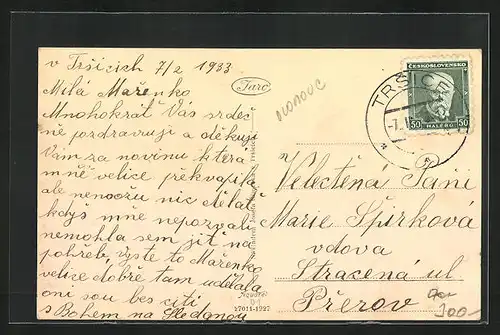 v Tršicích 7/2 1933
Milá Mařenko
Mnohokrát Vás srdeč
ně pozdravuji a děkuji
Vám za novinu která
mně velice překvapila
ale nemožu nic dělat
kdys mně nepozvali
nemohla sem jít na
pohřeb, vy ste to Mařenko
velice dobře tam udělala
oni sou bez citu
s Bohem na Shledanou
Tarc
OLOMOUC
ČESKOSLOVENSKO
50 HALÉŘŮ 50
TRŠICE
Velectěná Paní
Marie Špirková
vdova
Stracená ul
Přerov
300-